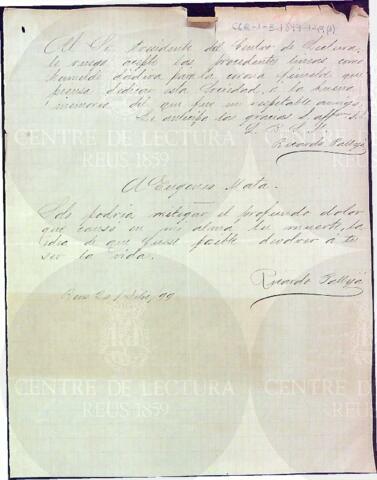 CLR-1-E-1899-1-9(1)
Al Sr. Presidente del Centro de Lectura,
le ruega acepte las precedentes lineas como
humilde dádiva para la corona fúnebre que
piensa dedicar esta Sociedad, a la buena
memoria del que fué un respetable amigo,
Le anticipa las gracias S. affmo. S.S.
Ricardo Pallejá
A Eugenio Mata.
Solo podria mitigar el profundo dolor
que causó en mi alma tu muerte, la
idea de que fuese posible devolver á tu
ser la vida.
Ricardo Pallejá
Reus 20 / 99
CENTRE DE LECTURA
REUS 1859
CENTRE DE LECTURA
REUS 1859